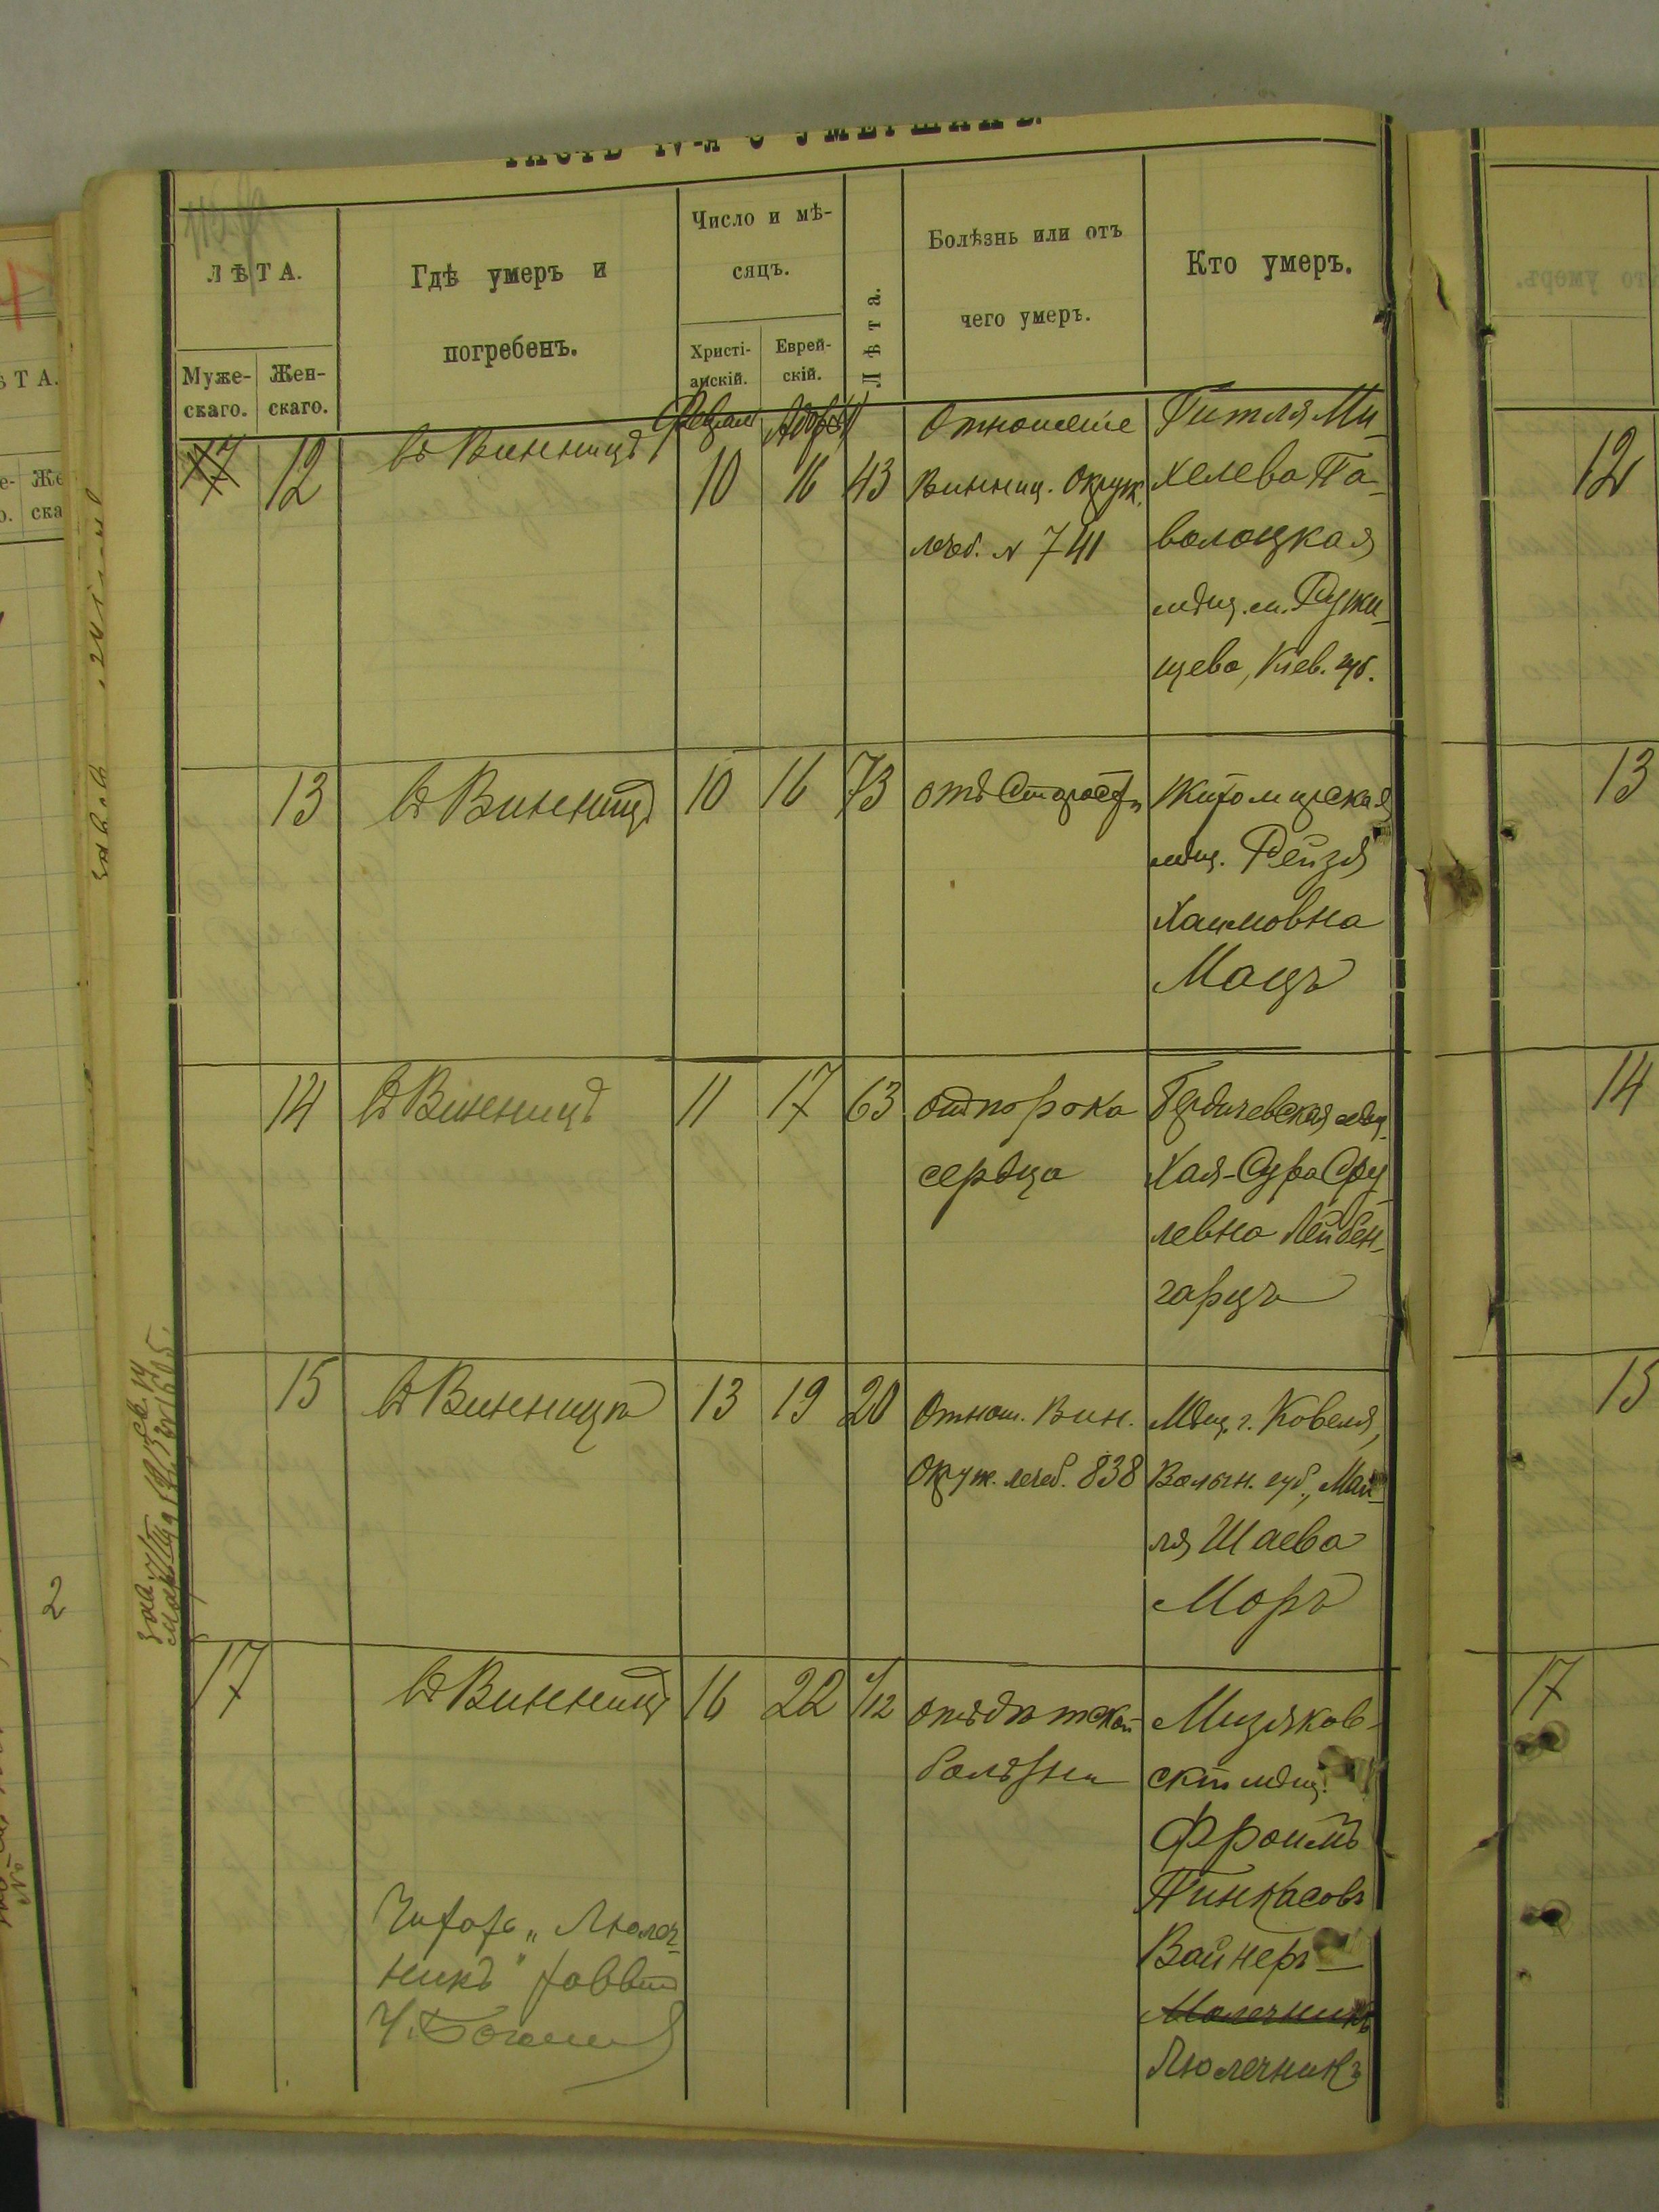 Часть IV-я о умершихъ.
ЛѢТА.
Муже-
скаго.
Жен-
скаго.
Гдѣ умеръ и
погребенъ.
Число и мѣ-
сяцъ.
Христі-
анскій.
Еврей-
скій.
Лѣта.
Болѣзнь или отъ
чего умеръ.
Кто умеръ.
12
въ Винницѣ
10
16
43
Отношеніе
Винниц. Окруж.
лечеб. N 741
Гитля Ми-
хелева Па-
волоцкая
мѣщ. м. Ружи-
Кіев. губ.
13
въ Винницѣ
10
16
73
отъ старости
Житомирская
мѣщ. Рейзя
Хаимовна
Мацъ
14
въ Винницѣ
11
17
63
отъ порока
сердца
Бердичевская мѣщ.
Хая-Сура Сру-
левна Лейбен-
гарцъ
15
въ Винницѣ
13
19
20
Отнош. Вин.
Окруж. лечеб. 838
Мѣщ. г. Ковеля,
Волын. губ., Май-
ля Шаева
Моръ
17
въ Винницѣ
16
22
1/12
отъ дѣтской
болѣзни
Мизяков-
скій мѣщ.
Фроимъ
Пинкасовъ
Вайнеръ
Молечникъ
Люлечникъ
"Люлеч-
никъ"
12
13
14
15
17
2